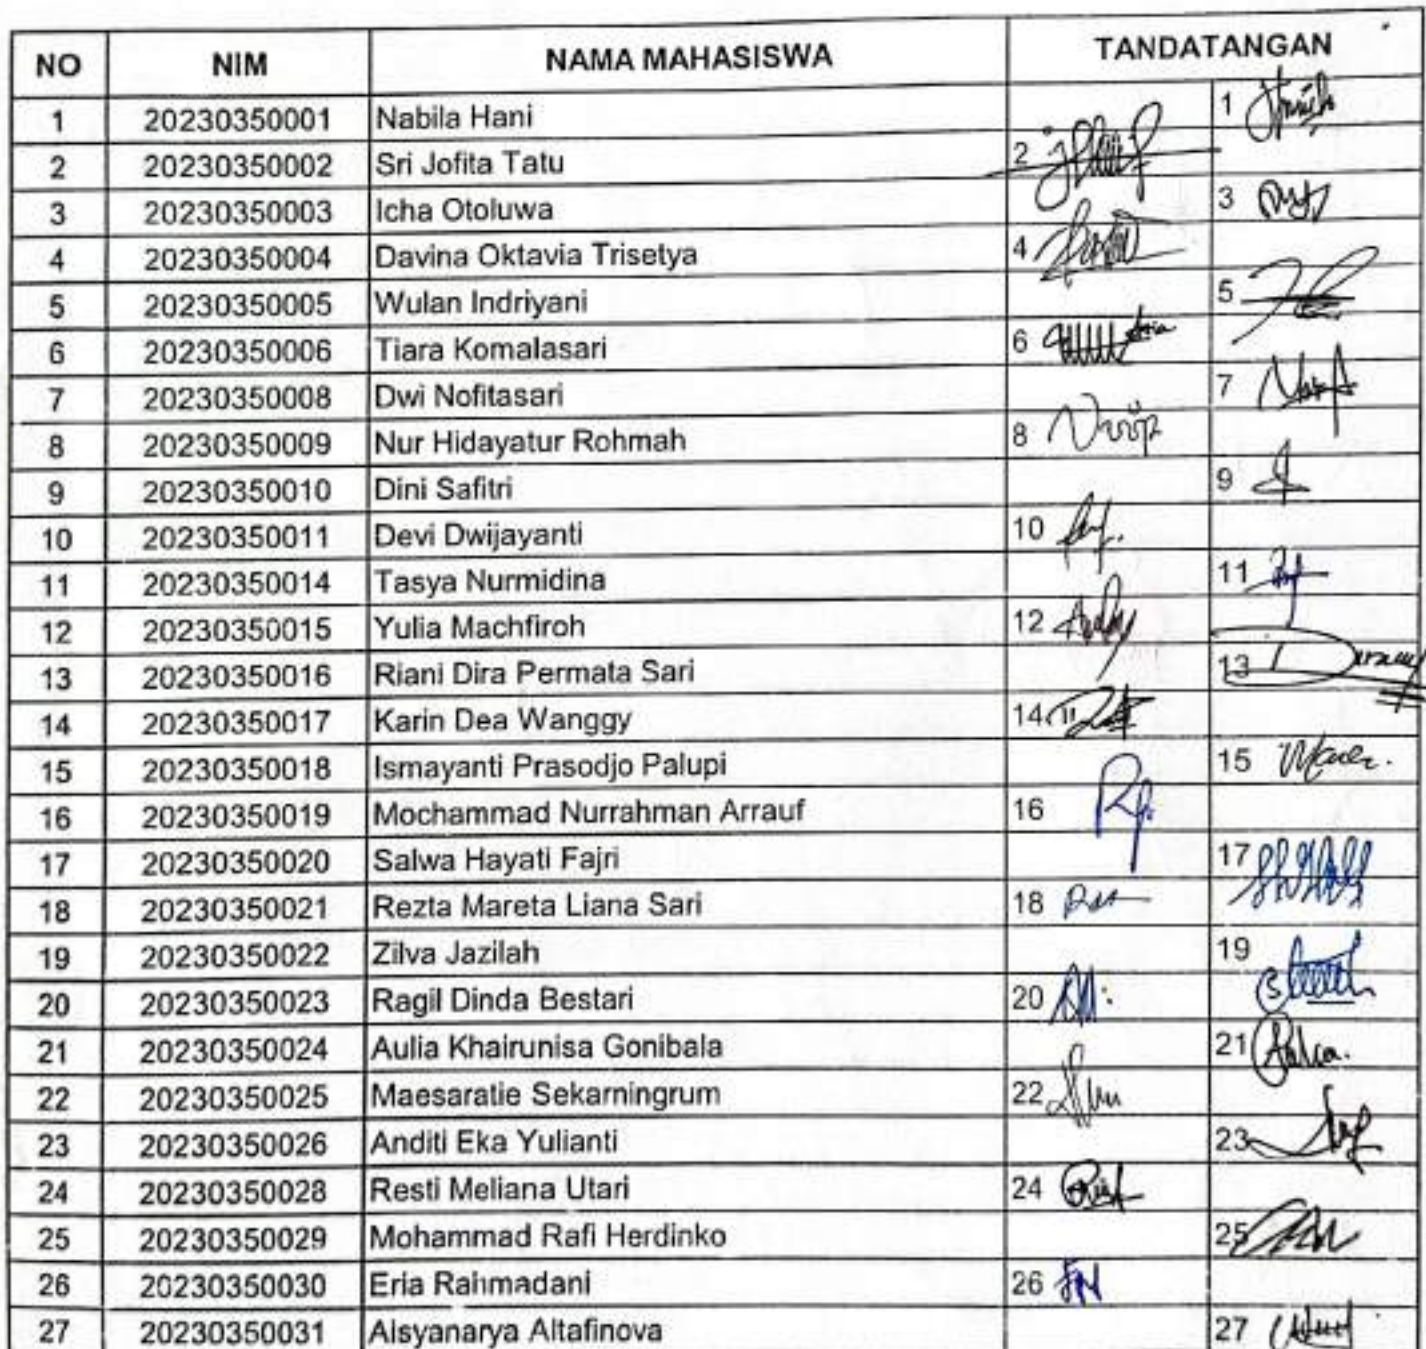 NO NIM NAMA MAHASISWA TANDATANGAN
1 20230350001 Nabila Hani 1
2 20230350002 Sri Jofita Tatu 2
3 20230350003 Icha Otoluwa 3
4 20230350004 Davina Oktavia Trisetya 4
5 20230350005 Wulan Indriyani 5
6 20230350006 Tiara Komalasari 6
7 20230350008 Dwi Nofitasari 7
8 20230350009 Nur Hidayatur Rohmah 8
9 20230350010 Dini Safitri 9
10 20230350011 Devi Dwijayanti 10
11 20230350014 Tasya Nurmidina 11
12 20230350015 Yulia Machfiroh 12
13 20230350016 Riani Dira Permata Sari 13
14 20230350017 Karin Dea Wanggy 14
15 20230350018 Ismayanti Prasodjo Palupi 15
16 20230350019 Mochammad Nurrahman Arrauf 16
17 20230350020 Salwa Hayati Fajri 17
18 20230350021 Rezta Mareta Liana Sari 18
19 20230350022 Zilva Jazilah 19
20 20230350023 Ragil Dinda Bestari 20
21 20230350024 Aulia Khairunisa Gonibala 21
22 20230350025 Maesaratie Sekarningrum 22
23 20230350026 Anditi Eka Yulianti 23
24 20230350028 Resti Meliana Utari 24
25 20230350029 Mohammad Rafi Herdinko 25
26 20230350030 Eria Rahmadani 26
27 20230350031 Aisyanarya Altafinova 27